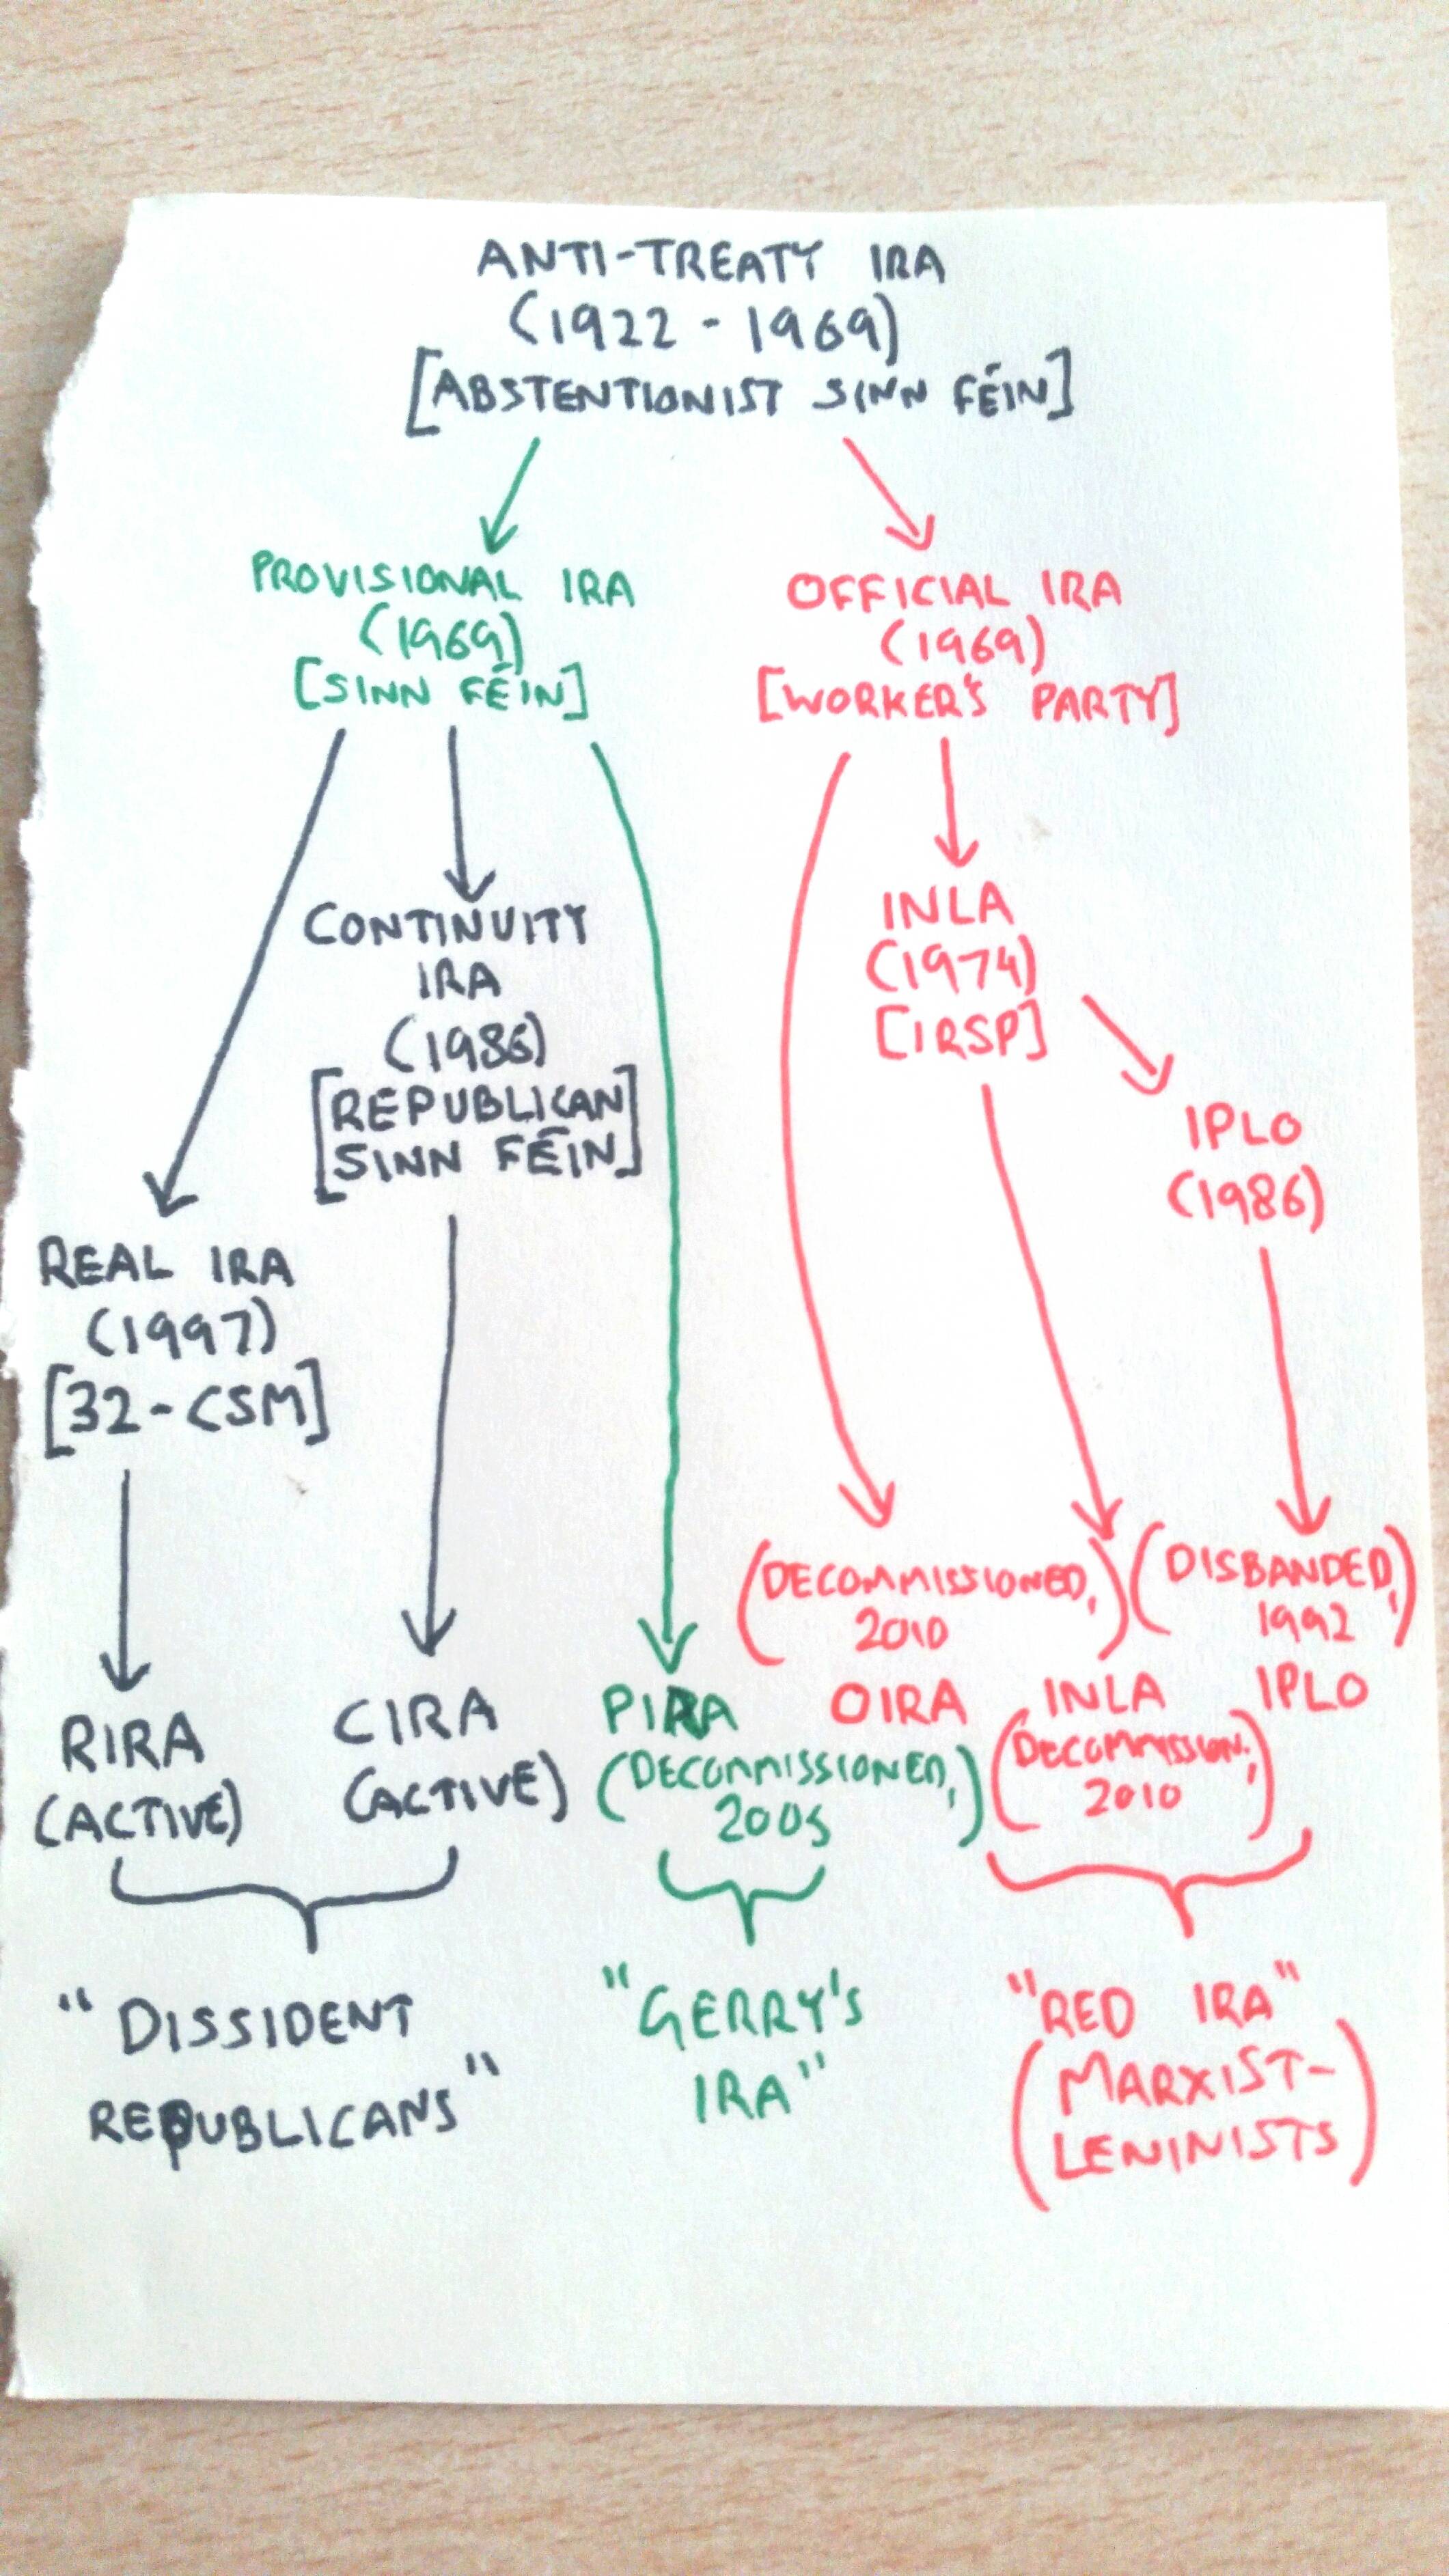 ANTI-TREATY IRA
(1922 - 1969)
[ABSTENTIONIST SINN FÉIN]
PROVISIONAL IRA
(1969)
[SINN FÉIN]
OFFICIAL IRA
(1969)
[WORKER'S PARTY]
CONTINUITY
IRA
(1986)
[REPUBLICAN
SINN FÉIN]
INLA
(1974)
[IRSP]
IPLO
(1986)
REAL IRA
(1997)
[32-CSM]
(DECOMMISSIONED,
2010)
OIRA
(DISBANDED,
1992)
IPLO
RIRA
(ACTIVE)
CIRA
(ACTIVE)
PIRA
(DECOMMISSIONED,
2005)
INLA
(DECOMMISSION.,
2010)
"DISSIDENT
REPUBLICANS"
"GERRY'S
IRA"
"RED IRA"
(MARXIST-
LENINISTS)